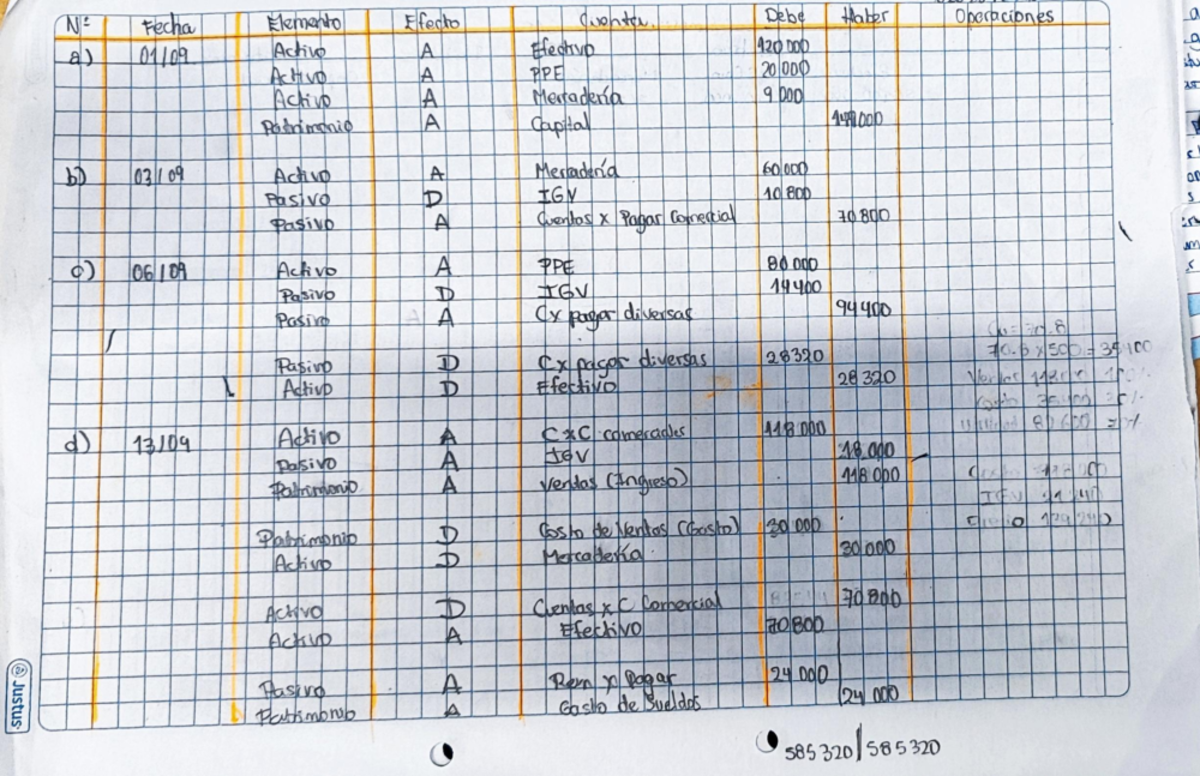 Nº Fecha Elemento Efecto Cuenta Debe Haber Operaciones
a) 01/09 Activo A Efectivo 120 000
Activo A PPE 20 000
Activo A Mercadería 9 000
Patrimonio A Capital 149 000
b) 03/09 Activo A Mercadería 60 000
Pasivo D IGV 10 800
Pasivo A Cuentas x Pagar Comercial 70 800
c) 06/09 Activo A PPE 80 000
Pasivo D IGV 14 400
Pasivo A Cx pagar diversas 94 400
70.8 x 500 = 35 400
Pasivo D Cx pagar diversas 28320
Activo D Efectivo 28 320
d) 13/09 Activo A CxC comerciales 118 000
Pasivo A IGV 18 000
Patrimonio A Ventas (Ingreso) 118 000
Patrimonio D Costo de Ventas (Gasto) 30 000
Activo D Mercadería 30 000
Activo D Cuentas x C Comercial 70 800
Activo A Efectivo 70 800
Pasivo A Rem x Pagar 24 000
Patrimonio A Gasto de Sueldos 24 000
585 320 / 585 320
Justus